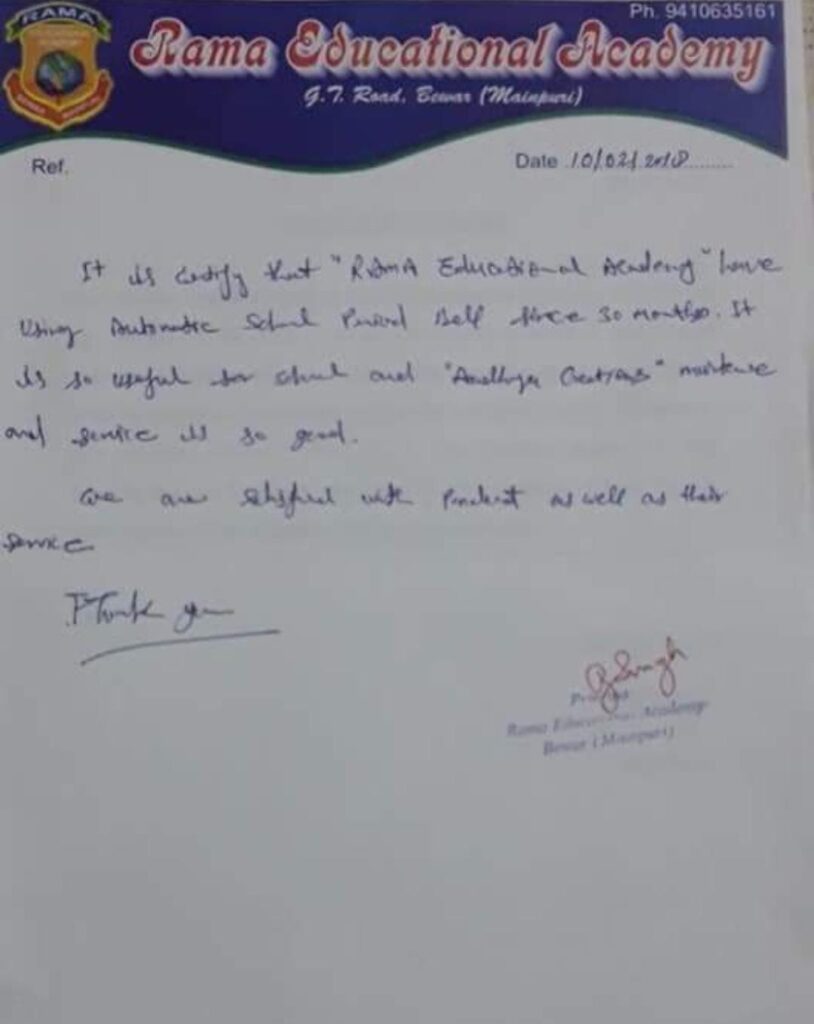 RAMA
Ph. 9410635161
Rama Educational Academy
G.T. Road, Bewar (Mainpuri)
Ref.
Date 10/02/2018
It is certify that "RAMA Educational Academy" have
Using Automatic School Period Bell since 30 months. It
is so useful for school and Creations"
and service is so good.
We are satisfied with Product as well as their
service
Thank you
Rama Educational Academy
Bewar (Mainpuri)